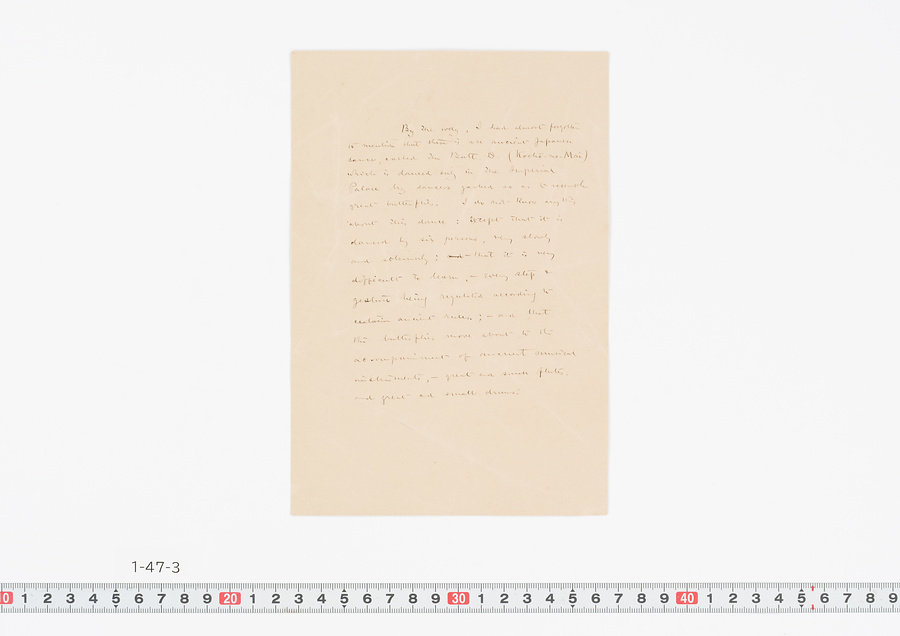 By the way, I had almost forgotten
to mention that there is an ancient Japanese
dance, called the Butt B (Kochō-no-Mai)
which is danced only in the Imperial
Palace by dancers garbed so as to resemble
great butterflies. I do not know anything
about this dance; except that it is
danced by six persons, very slowly
and solemnly; and that it is very
difficult to learn, – every step &
gesture being regulated according to
certain ancient rules; – and that
the butterflies move about to the
accompaniment of ancient musical
instruments, – great and small flutes,
and great and small drums.
1-47-3
0 1 2 3 4 5 6 7 8 9 20 1 2 3 4 5 6 7 8 9 30 1 2 3 4 5 6 7 8 9 40 1 2 3 4 5 6 7 8 9